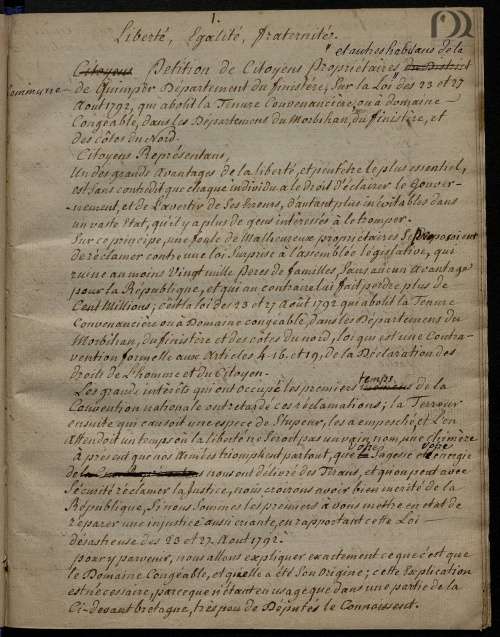 1.
Liberté, Egalité, fraternité.
" et autres habitans de la
Citoyens Petition de Citoyens Propriétaires du District
Commune de Quimper Département du finistère, Sur la Loi " des 23 et 27
Aout 1792, qui abolit la Tenure Convenancière, ou à domaine
Congéable, dans les Départemens du Morbihan, du finistère, et
des côtes du Nord.
Citoyens Représentans,
Un des grands avantages de la liberté, et peutêtre le plus essentiel,
est sans contredit que chaque individu a le droit d'éclairer le Gouver-
-nement, et de l'avertir de Ses Erreurs, d'autant plus inévitables dans
un vaste Etat, qu'il y a plus de gens intéressés à le tromper.
Sur ce principe, une foule de Malheureux propriétaires Se proposoient
de réclamer contre une loi Surprise à l'assemblée législative, qui
ruine au moins Vingt mille Peres de familles, Sans aucun Avantage
pour la République, et qui au contraire lui fait perdre plus de
Cent Millions; c'est la loi des 23 et 27 Août 1792 qui abolit la Tenure
Convenancière ou à Domaine congeable, dans les Départemens du
Morbihan, du finistère et des côtes du nord, loi qui est une Contra-
vention formelle aux Articles 4-16 et 19, de la Déclaration des
droits de L'homme et du Citoyen.
Les grands intérêts qui ont occupé les premiers temps de la
Convention nationale ont retardé ces réclamations; la Terreur
ensuite qui causoit une espece de Stupeur, les a empesché, et l'on
Attendoit un temps ou la liberté ne Seroit pas un vain nom, une chimère
à présent que nos Armées triomphent partout, que votre Sagesse et votre énergie
de la nous ont délivré des Tirans, et qu'on peut avec
Sécurité réclamer la Justice, nous croirons avoir bien merité de la
République, Si nous Sommes les premiers à vous mettre en état de
réparer une injustice aussi criante, en rapportant cette Loi
désastreuse des 23 et 27 Aout 1792.
pour y parvenir, nous allons expliquer exactement ce que c'est que
le Domaine Congéable, et quelle a été Son Origine; cette Explication
est nécessaire, parceque n'étant en usage que dans une partie de la
Ci-devant bretagne, très peu de Députés le Connoissent.